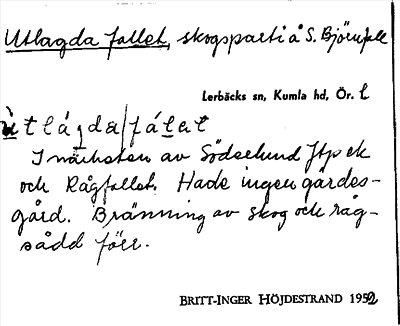 Utlagda fallet, skogsparti å S. Björnfall
Lerbäcks sn, Kumla hd, Ör. l
ù t l á g d a / f á l e t
I närheten av Södselund Jtp ek
och Rågfallet. Hade ingen gärdes-
gård. Bränning av skog och råg-
sådd förr.
BRITT-INGER HÖJDESTRAND 1952